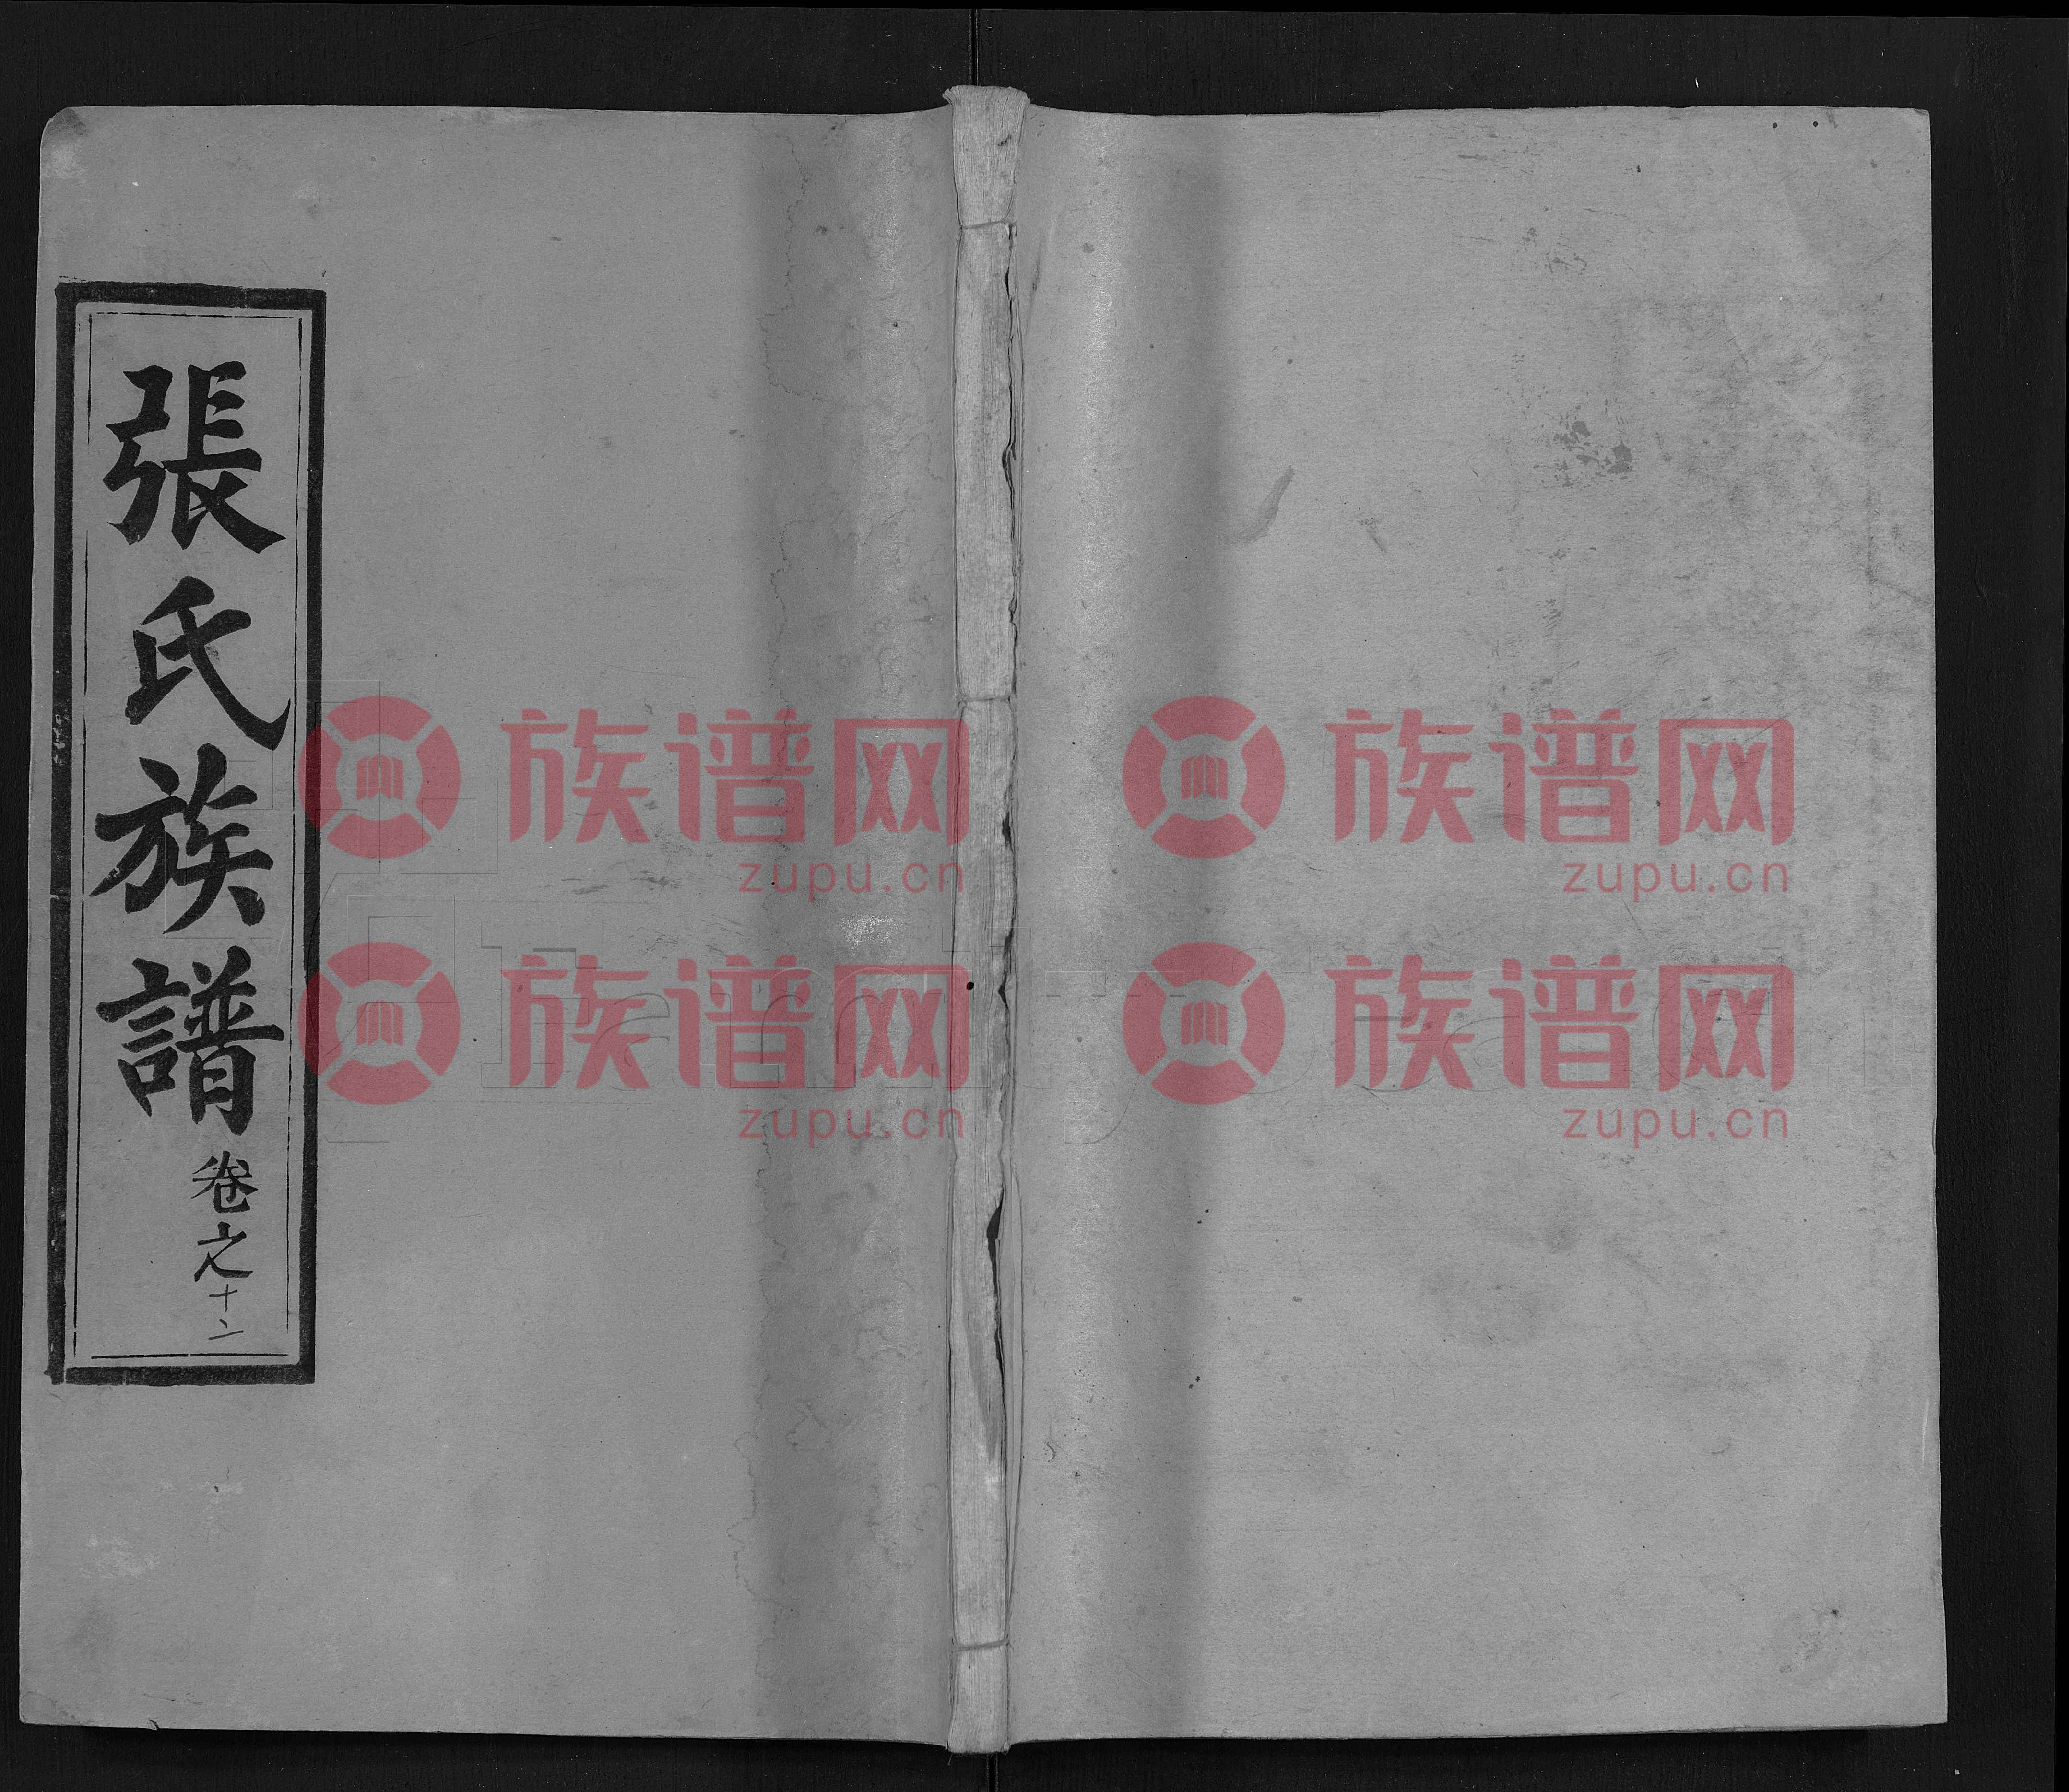 張氏族譜
卷之十二
族谱网
zupu.cn
族谱网
zupu.cn
族谱网
zupu.cn
族谱网
zupu.cn